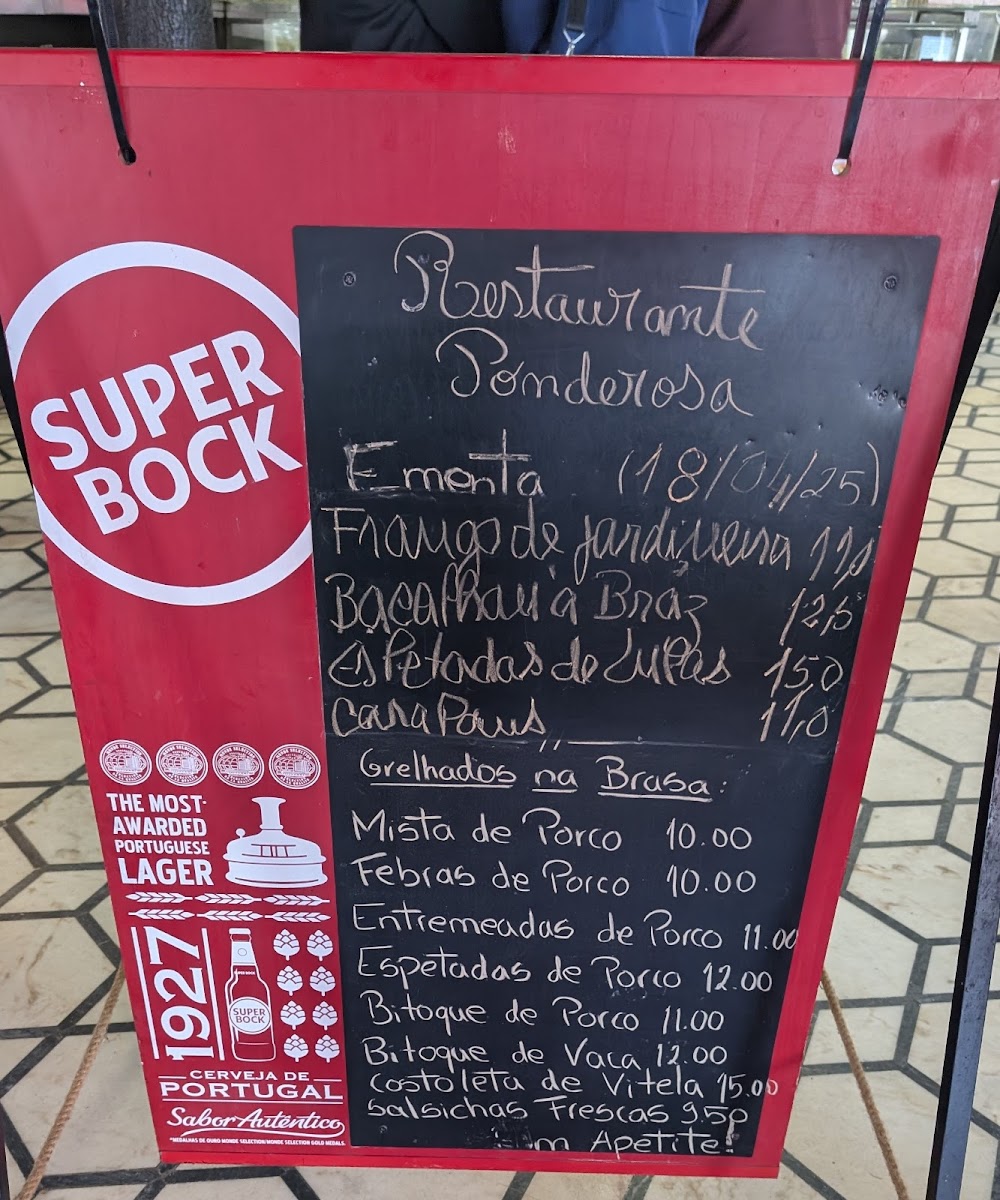 SUPER
BOCK
Restaurante
Ponderosa
Ementa (18/04/25)
Frango de jardineira 11,0
Bacalhau á Braz 12,5
Espetadas de Lulas 15,0
CaraPaus 11,0
Grelhados na Brasa:
Mista de Porco 10.00
Febras de Porco 10.00
Entremeadas de Porco 11.00
Espetadas de Porco 12.00
Bitoque de Porco 11.00
Bitoque de Vaca 12.00
Costoleta de Vitela 15.00
Salsichas Frescas 9.50
m Apetite!
THE MOST-
AWARDED
PORTUGUESE
LAGER
1927
SUPER
BOCK
CERVEJA DE
PORTUGAL
Sabor Autêntico
*MEDALHAS DE OURO MONDE SELECTION/MONDE SELECTION GOLD MEDALS.